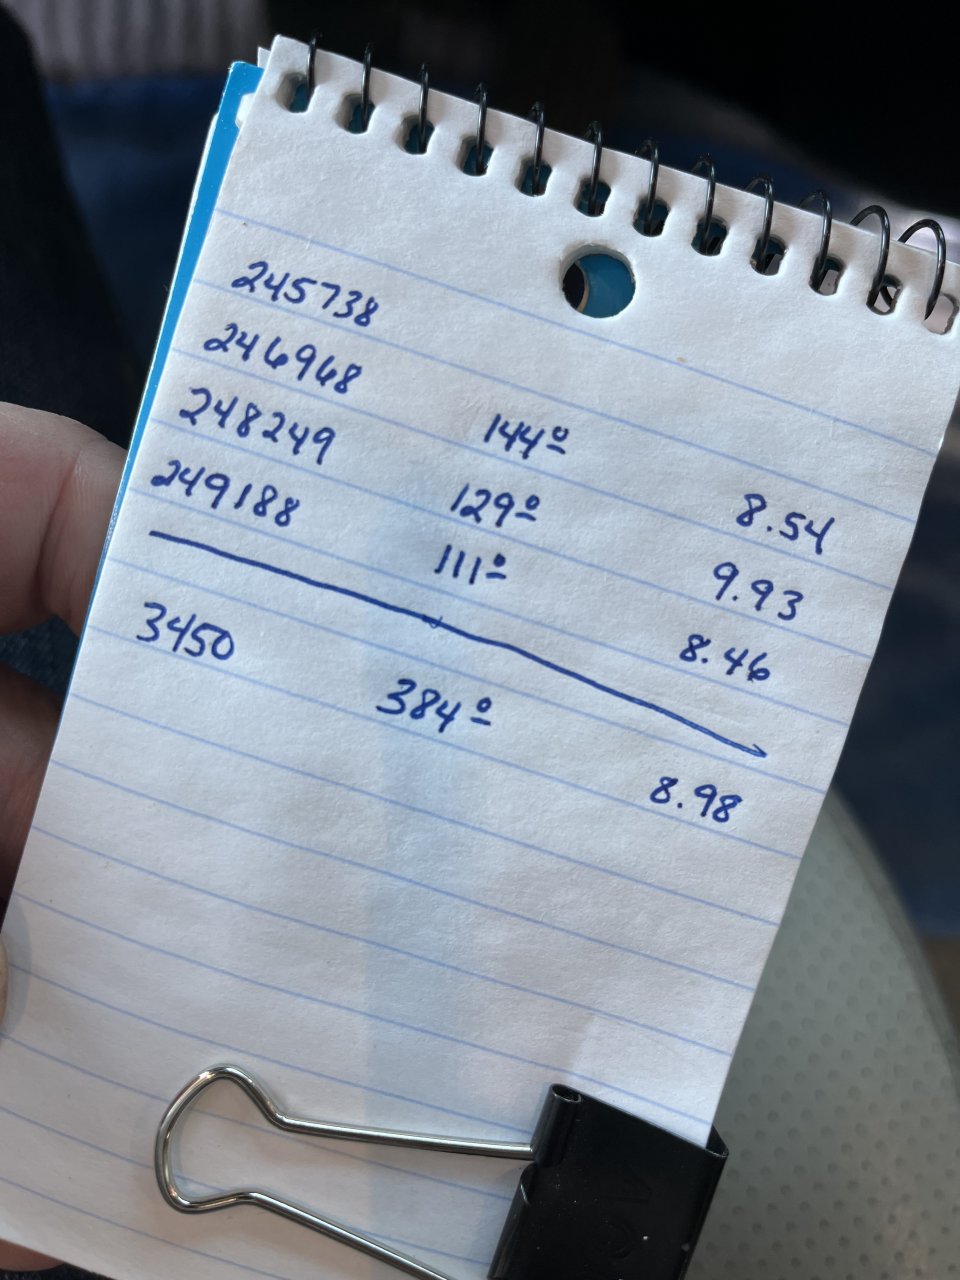 245738
246968 144º 8.54
248249 129º 9.93
249188 111º 8.46
3450 384º 8.98